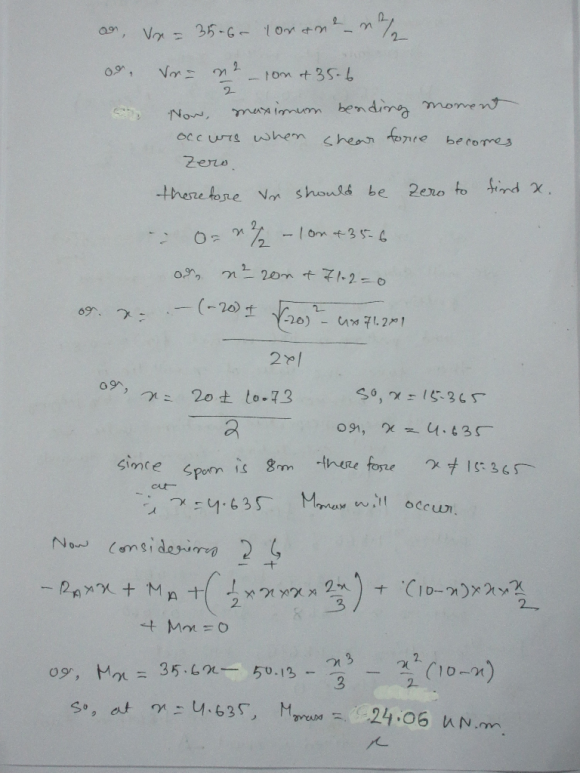 or, Vx = 35.6 - 10x + x² - x²/2
or, Vx = x²/2 - 10x + 35.6
Now, maximum bending moment
occurs when shear force becomes
zero.
therefore Vx should be zero to find x.
∴ 0 = x²/2 - 10x + 35.6
or, x² - 20x + 71.2 = 0
or. x = -(-20) ± √(-20)² - 4×71.2×1 / 2×1
or, x = 20 ± 10.73 / 2 so, x = 15.365
or, x = 4.635
since span is 8m there fore x ≠ 15.365
∴ at x = 4.635 Mmax will occur.
Now considering
- RA×x + MA + (1/2 × x × x × 2x/3) + (10-x)×x×x/2
+ Mx = 0
or, Mx = 35.6x - 50.13 - x³/3 - x²/2 (10-x)
So, at x = 4.635, Mmax = 24.06 kN.m.